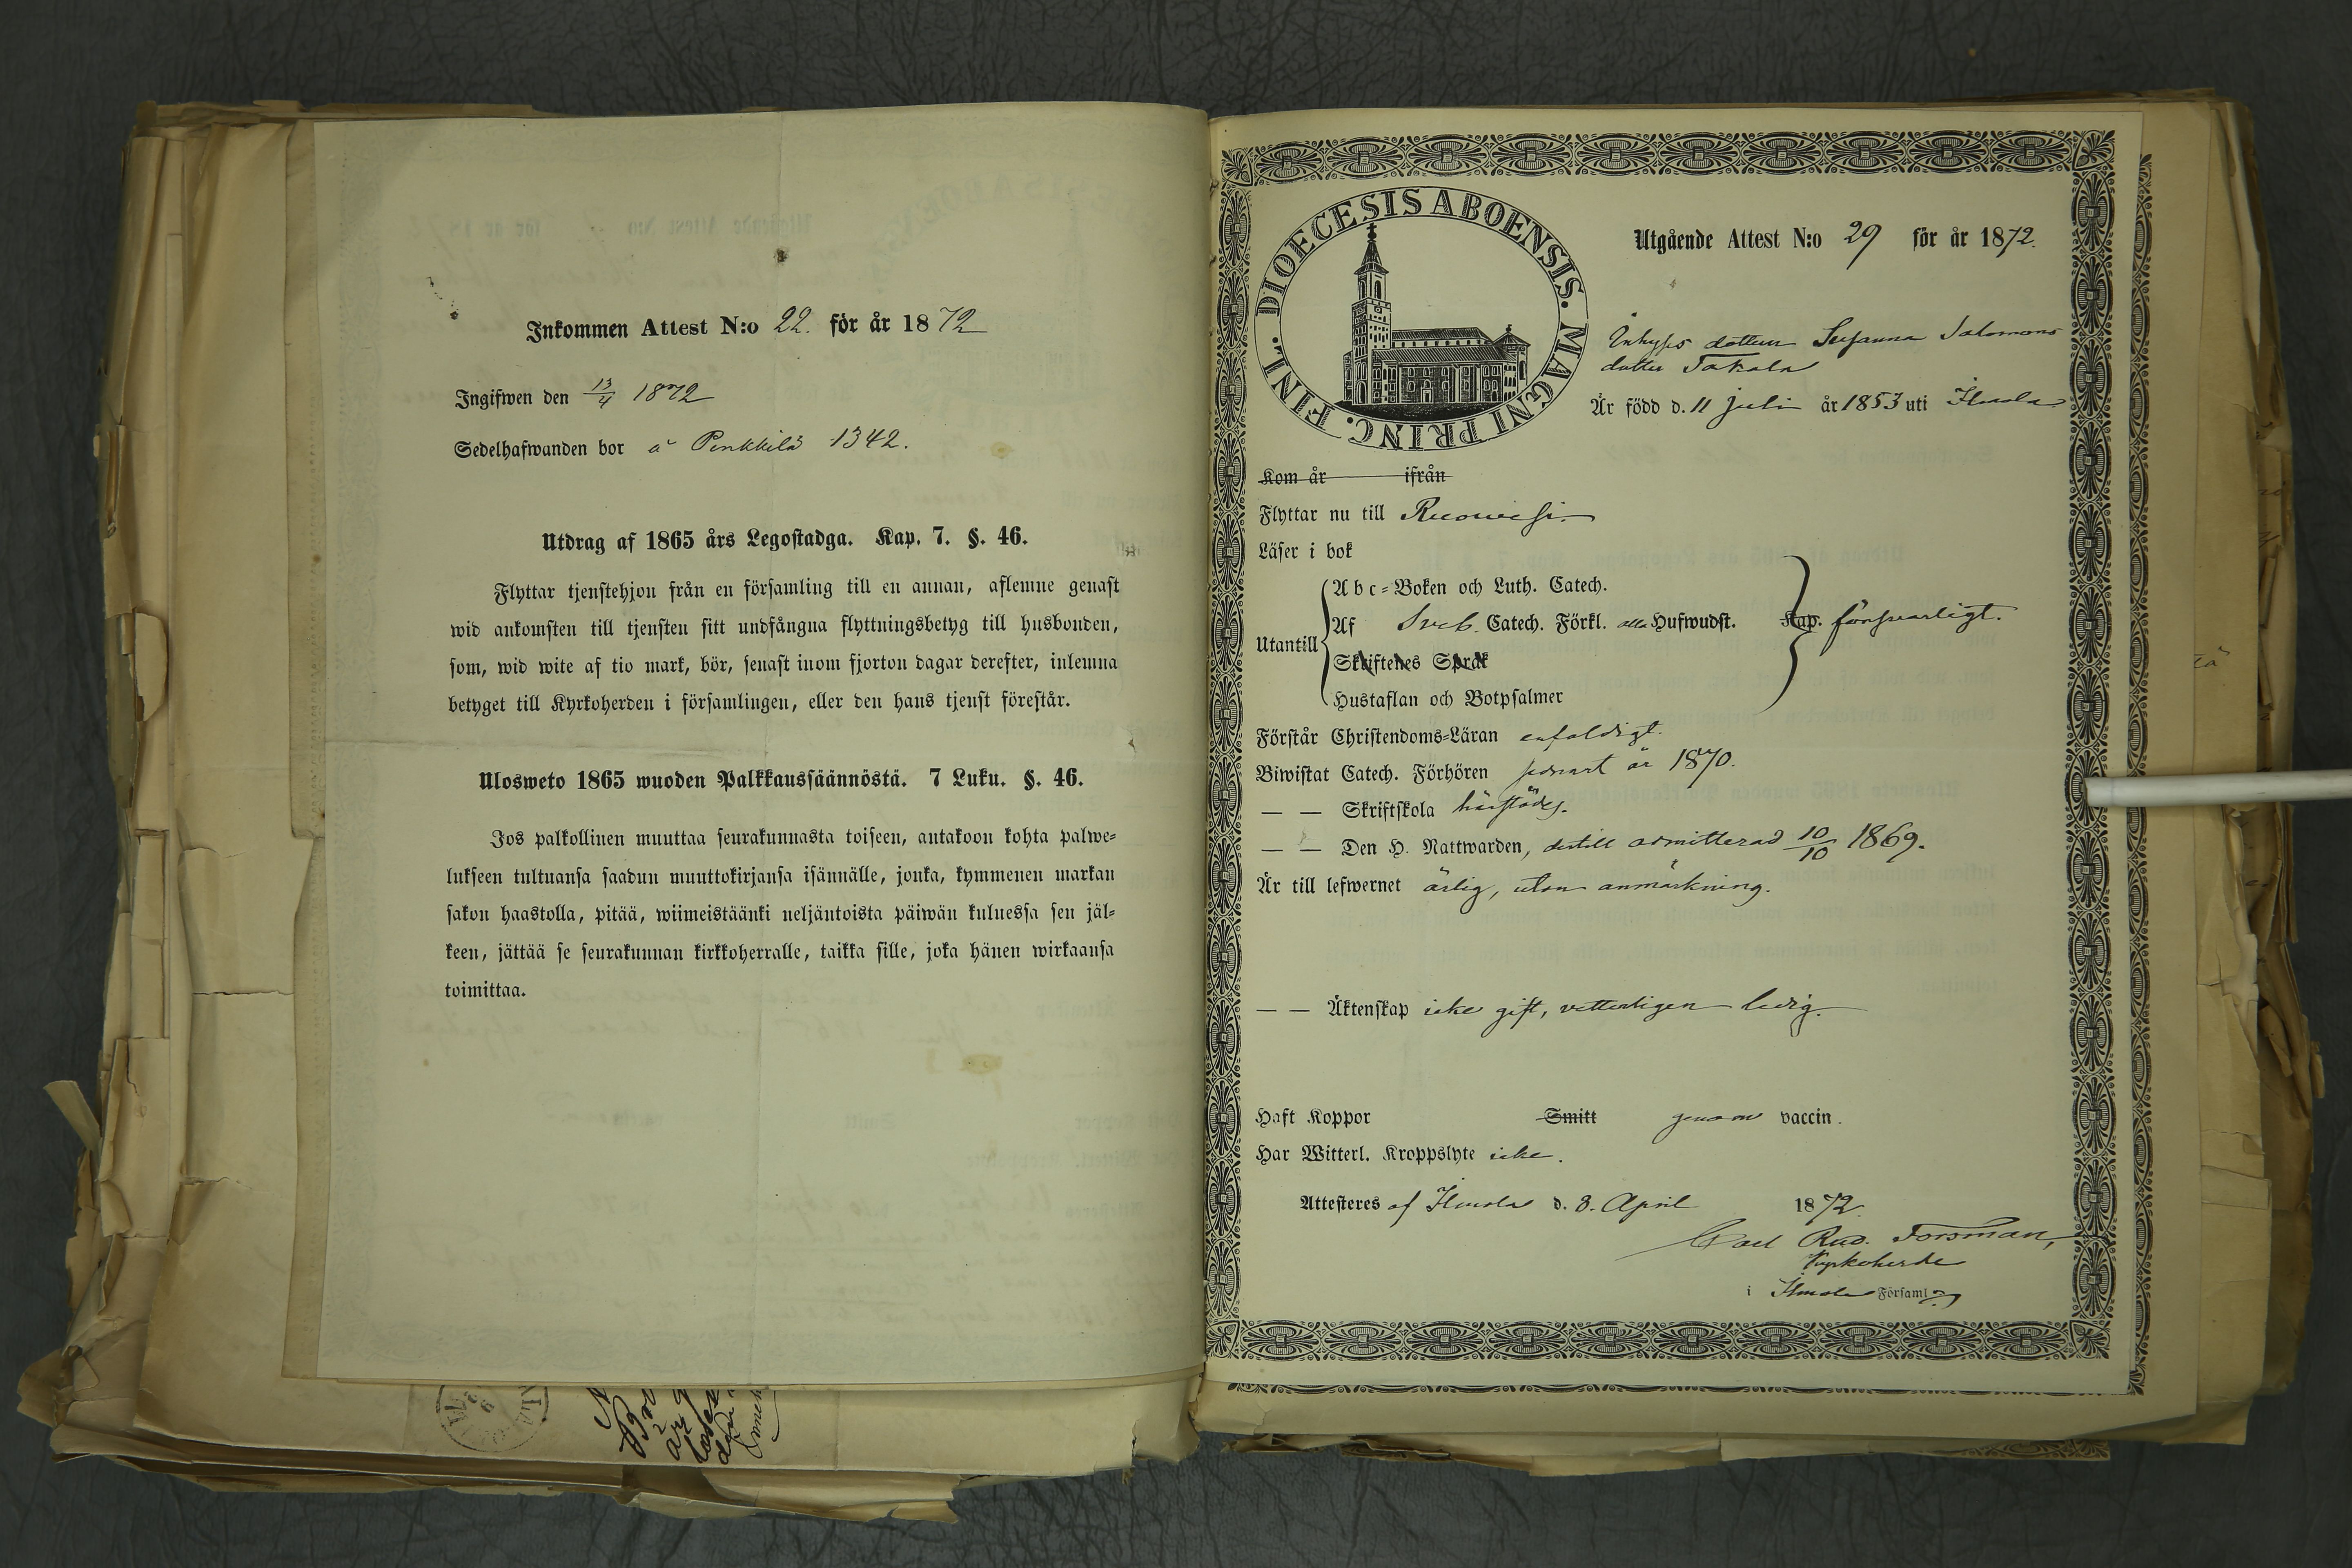 Inkommen Attest N:o 22. för år 1872
Ingifwen den 13/4 1872
Sedelhafwanden bor å Penkkilä 1342.
Utdrag af 1865 års Legostadga. Kap. 7. §. 46.
Flyttar tjenstehjon från en församling till en annan, aflemne genast
wid ankomsten till tjensten sitt undfångna flyttningsbetyg till husbonden,
som, wid wite af tio mark, bör, senast inom fjorton dagar derefter, inlemna
betyget till Kyrkoherden i församlingen, eller den hans tjenst förestår.
Ulosweto 1865 wuoden Palkkaussäännöstä. 7 Luku. §. 46.
Jos palkollinen muuttaa seurakunnasta toiseen, antakoon kohta palwe-
lukseen tultuansa saadun muuttokirjansa isännälle, jonka, kymmenen markan
sakon haastolla, pitää, wiimeistäänki neljäntoista päiwän kuluessa sen jäl-
keen, jättää se seurakunnan kirkkoherralle, taikka sille, joka hänen wirkaansa
toimittaa.
DIOECESIS ABOENSIS. MAGNI PRINC. FINL.
Utgående Attest N:o 29 för år 1872.
Inhyses dottern Susanna Salomons
dotter Takala
Är född d. 11 juli år 1853 uti Ilmola
Kom år ifrån
Flyttar nu till Ruowesi.
Läser i bok
Utantill
Abc-Boken och Luth. Catech.
Af Sveb. Catech. Förkl. alla Hufwudst. Kap. försvarligt.
Skriftenes Språk
Hustaflan och Botpsalmer
Förstår Christendoms-Läran enfaldigt.
Biwistat Catech. Förhören senast år 1870.
— — Skriftskola härstädes.
— — Den H. Nattwarden, dertill admitterad 10/10 1869.
Är till lefwernet ärlig, utan anmärkning.
— — Äktenskap icke gift, vetterligen ledig.
Haft Koppor Smitt genom vaccin.
Har Witterl. Kroppslyte icke.
Attesteres af Ilmola d. 8. April 1872.
Carl Rud. Forsman,
Kyrkoherde
i Ilmola Församl